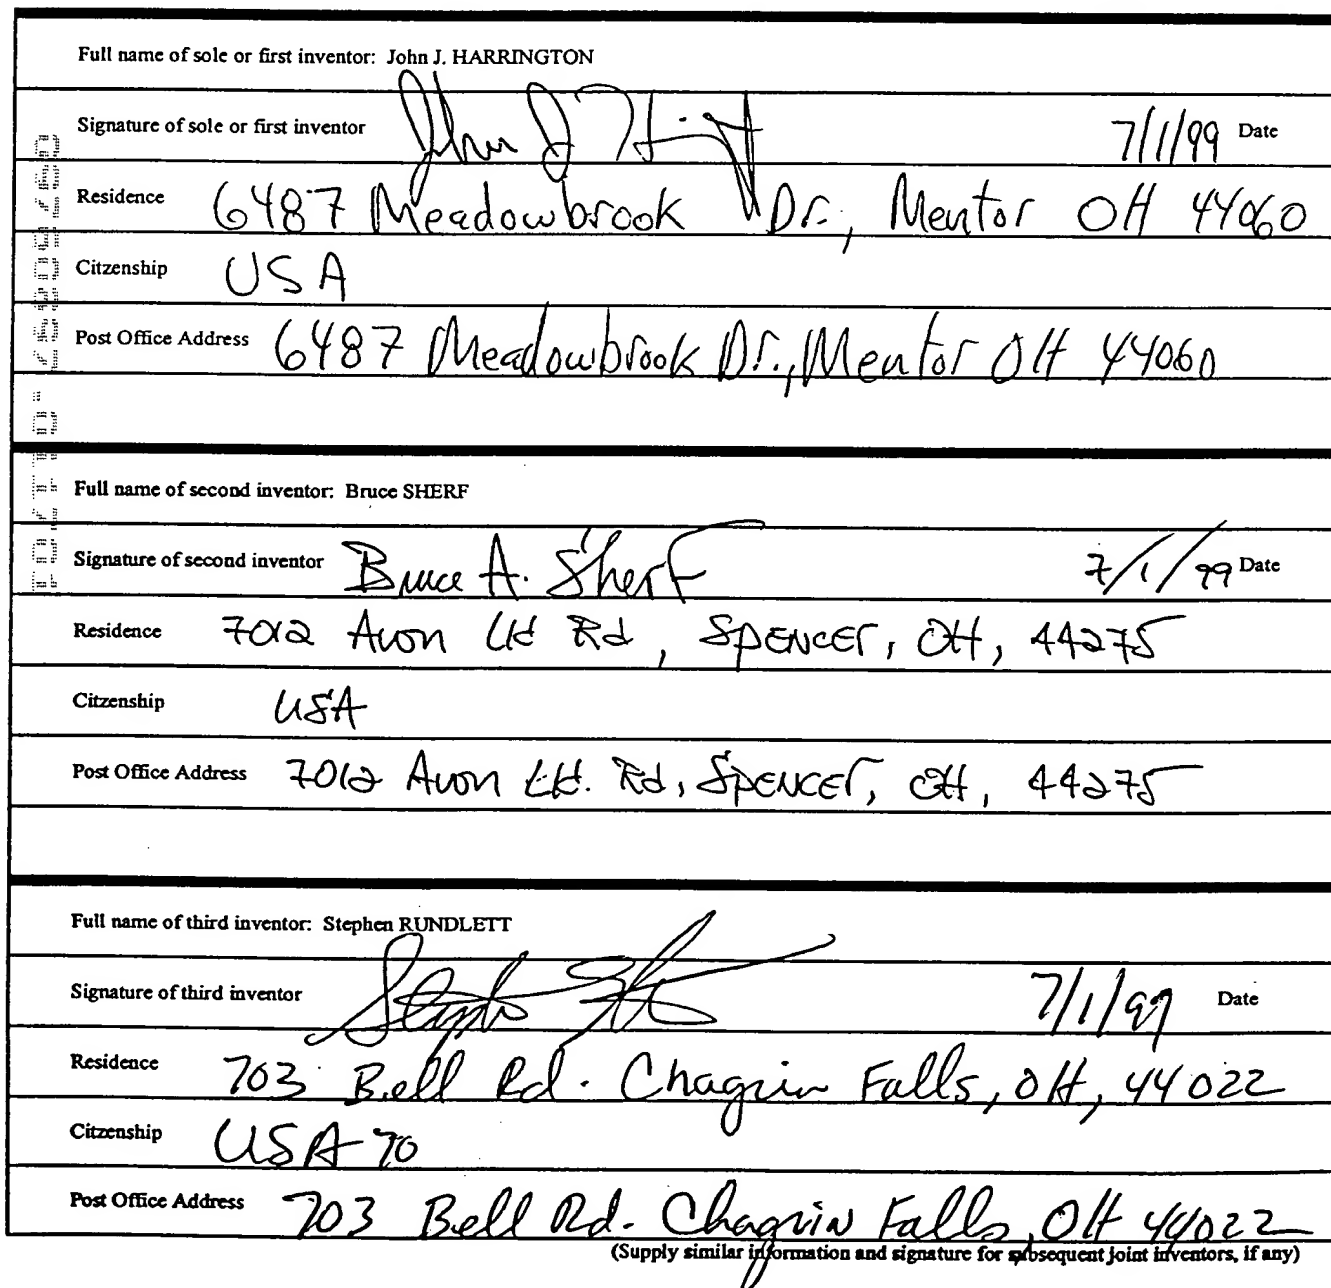 Full name of sole or first inventor: John J. HARRINGTON
Signature of sole or first inventor John J 7/1/99 Date
Residence 6487 Meadowbrook Dr., Mentor OH 44060
Citzenship USA
Post Office Address 6487 Meadowbrook Dr., Mentor OH 44060
Full name of second inventor: Bruce SHERF
Signature of second inventor Bruce A. Sherf 7/1/99 Date
Residence 7012 Avon Rd, SPENCER, OH, 44275
Citzenship USA
Post Office Address 7012 Avon Rd, SPENCER, OH, 44275
Full name of third inventor: Stephen RUNDLETT
Signature of third inventor 7/1/99 Date
Residence 703 Bell Rd. Chagrin Falls, OH, 44022
Citzenship USA 70
Post Office Address 703 Bell Rd. Chagrin Falls, OH 44022
(Supply similar information and signature for subsequent joint inventors, if any)